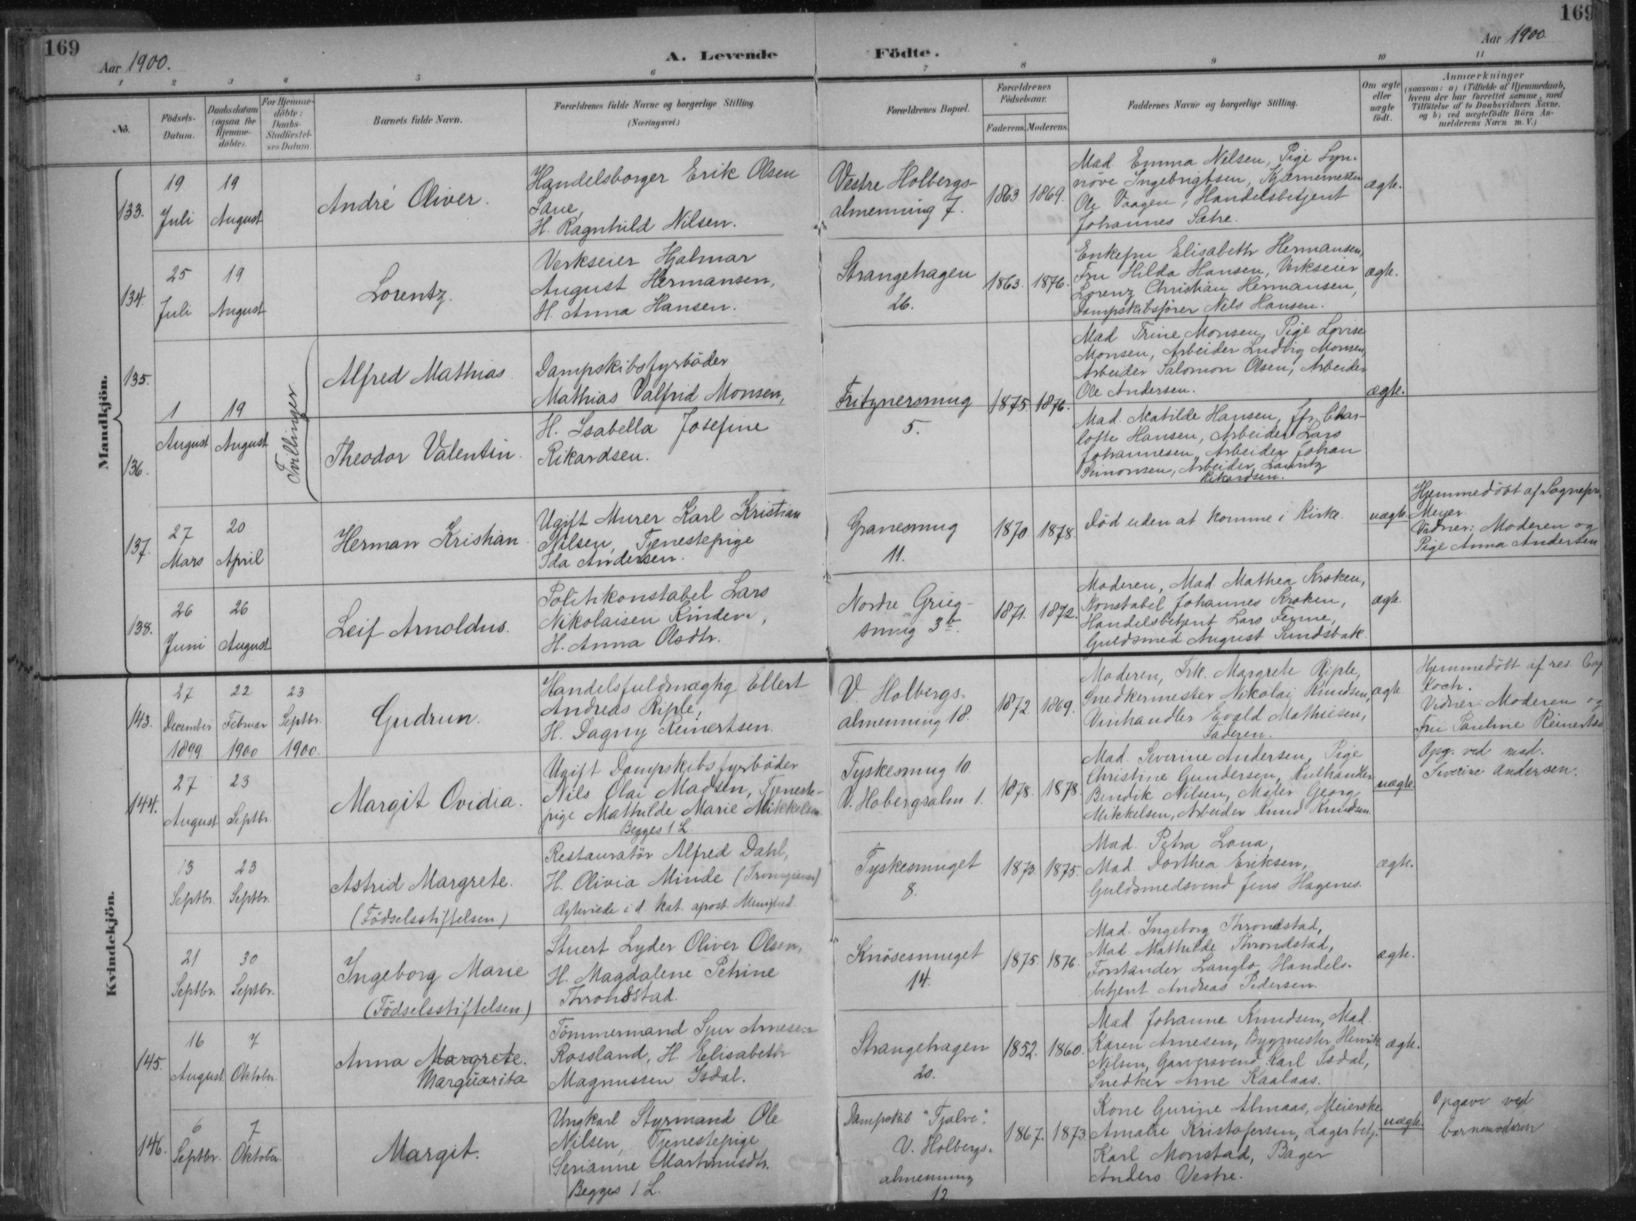 169
169
Aar 1900.
A. Levende
Födte.
Aar 1900
1 2 3 4 5 6 7 8 9 10 11
No.
Födsels-
Datum.
Daabsdatum
(ogsaa for
Hjemme-
döbte).
For Hjemme-
döbte:
Daabs-
Stadfæstel-
ses Datum
Barnets fulde Navn.
Forældrenes fulde Navne og borgerlige Stilling.
(Næringsvei.)
Forældrenes Bopæl.
Forældrenes
Födselsaar.
Faderens. Moderens.
Faddernes Navne og borgerlige Stilling.
Om ægte
eller
uægte
födt.
Anmærkninger
(saasom: a) (Tilfælde af Hjemmedaab,
hvem der har forrettet samme, med
Tilföielse af to Daabsvidners Navne.
og b) ved uægtefödte Börn An-
melderens Navn m. V.)
Mandkjön.
133.
19
Juli
19
August
André Oliver.
Handelsborger Erik Olsen
H. Ragnhild Nilsen.
Vestre Holbergs-
almenning 7.
1863 1869.
Mad Emma Nilsen, Pige Syn-
növe Ingebrigtsen,
Ole Vaagen, Handelsbetjent
Johannes Sætre.
ægte.
134.
25
Juli
19
August
Lorentz.
Verkseier Hjalmar
August Hermansen,
H. Anna Hansen.
Strangehagen
26.
1863. 1876.
Enkefru Elisabeth Hermansen,
Fru Hilda Hansen, Verkseier
Lorenz Christian Hermansen,
Dampskibsförer Nils Hansen.
ægte.
135.
1
August
19
August
Tvillinger
Alfred Mathias
Dampskibsfyrböder
Mathias Valfrid Monsen,
H. Isabella Josefine
Rikardsen.
Fritznersmug
5.
1875 1876.
Mad Trine Monsen, Pige Lovise
Monsen, Arbeider Ludvig Monsen,
Arbeider Salomon Olsen, Arbeider
Ole Andersen.
ægte.
136.
Theodor Valentin.
Mad. Matilde Hansen, Char-
lotte Hansen, Arbeider Lars
Johannesen, Arbeider Johan
Simonsen, Arbeider Lauritz
Rikardsen.
137.
27
Mars
20
April
Herman Kristian
Ugift Murer Karl Kristian
Nilsen, Tjenestepige
Ida Andersen.
Granesmug
11.
1870 1878.
Död uden at komme i Kirke.
uægte
Hjemmedöbt af Sognepr.
Meyer.
Vidner: Moderen og
Pige Anna Andersen
138.
26
Juni
26
August
Leif Arnoldus.
Politikonstabel Lars
Nikolaisen Rinden,
H. Anna Olsdtr.
Nordre Grieg-
smug 3b.
1871. 1872.
Moderen, Mad Mathea Kroken,
Konstabel Johannes Kroken,
Handelsbetjent Lars
Guldsmed August Sundsbak.
ægte
Kvindekjön.
143.
27
December
1899
22
Februar
1900
23
Septbr.
1900.
Gudrun.
Handelsfuldmægtig Ellert
Andreas Riple,
H. Dagny Reinertsen.
V Holbergs-
almenning 18.
1872. 1869.
Moderen, Frk. Margrete Riple,
Snedkermester Nikolai Knudsen,
Vinhandler Evald Mathiesen,
Faderen.
ægte
Hjemmedöbt af res. Cap
Koch.
Vidner: Moderen og
Fru Pauline Reinertsen
144.
27
August
23
Septbr.
Margit Ovidia.
Ugift Dampskibsfyrböder
Nils Olai Madsen, Tjeneste-
pige Mathilde Marie Mikkelsen
Begges 1 L.
Tyskesmug 10
V. Hobergsalm. 1.
1878. 1878.
Mad. Severine Andersen, Pige
Christine Gundersen,
Bendik Nilsen, Maler Georg
Mikkelsen, Arbeider Knud Knudsen
uægte.
Opg. ved mad.
Severine Andersen.
13
Septbr.
23
Septbr.
Astrid Margrete.
(Födselsstiftelsen)
Restauratör Alfred Dahl,
H. Olivia Minde
Ægteviede i d. kat. apost. Menighed
Tyskesmuget
8.
1873. 1875.
Mad. Petra Lona,
Mad. Dorthea Eriksen,
Guldsmedsvend Jens Hagenes.
ægte.
21
Septbr.
30
Septbr.
Ingeborg Marie
(Födselsstiftelsen)
Stuert Lyder Oliver Olsen,
H. Magdalene Petrine
Throndstad.
Knösesmuget
14.
1875 1876.
Mad. Ingeborg Throndstad,
Mad. Mathilde Throndstad,
Forstander Langlo, Handels-
betjent Andreas Pedersen.
ægte.
145.
16
August
7
Oktober.
Anna Margrete.
Marguarita
Tömmermand Sjur Arnesen
Rossland, H. Elisabeth
Magnussen Isdal.
Strangehagen
20.
1852. 1860.
Mad Johanne Knudsen, Mad.
Karen Arnesen, Bygmester Henrik
Nilsen, Garversvend Karl Isdal,
Snedker Arne Kaalaas.
ægte.
146.
6
Septbr.
7
Oktober
Margit.
Ungkarl Styrmand Ole
Nilsen, Tjenestepige
Serianne Martinusdtr.
Begges 1 L.
Dampskb "Fjalve".
V. Holbergs-
almenning
12
1867. 1873.
Kone Gurine Almaas, Meierske
Amalie Kristofersen, Lagerbetj.
Karl Monstad, Bager
Anders Vestre.
uægte.
Opgave ved
barnemoderen